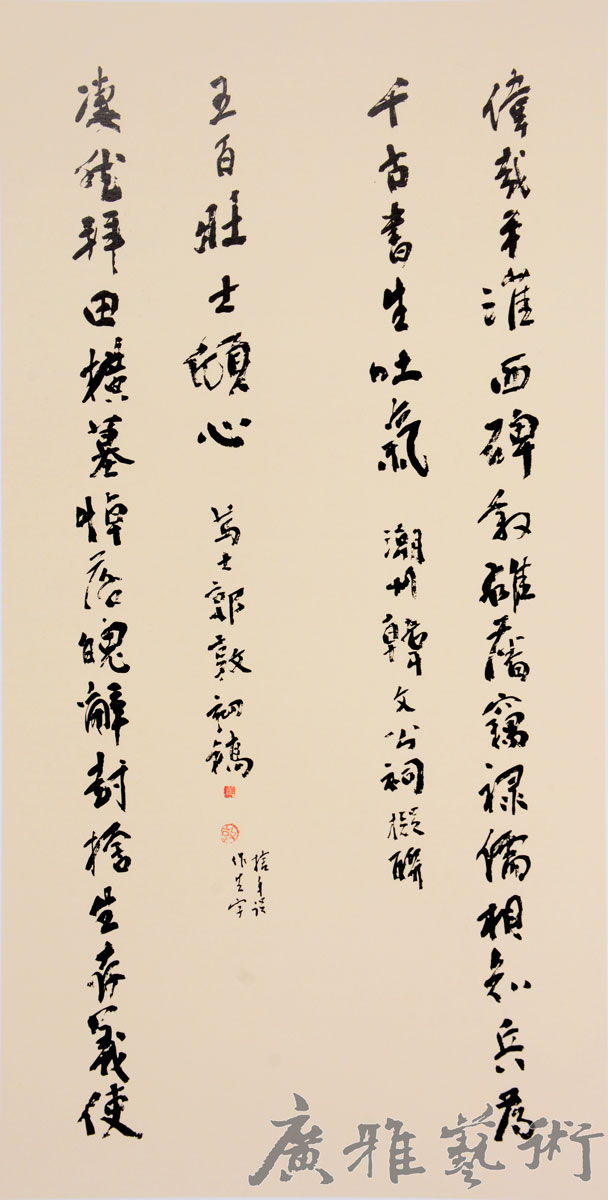 偉哉平淮西碑敘雄藩竊祿儒相知兵為
千古書生吐氣
潮州韓文公祠擬聯
凄然拜田橫墓悼落魄解封捨生義使
五百壯士傾心
士郭敦初稿
廣雅藝術